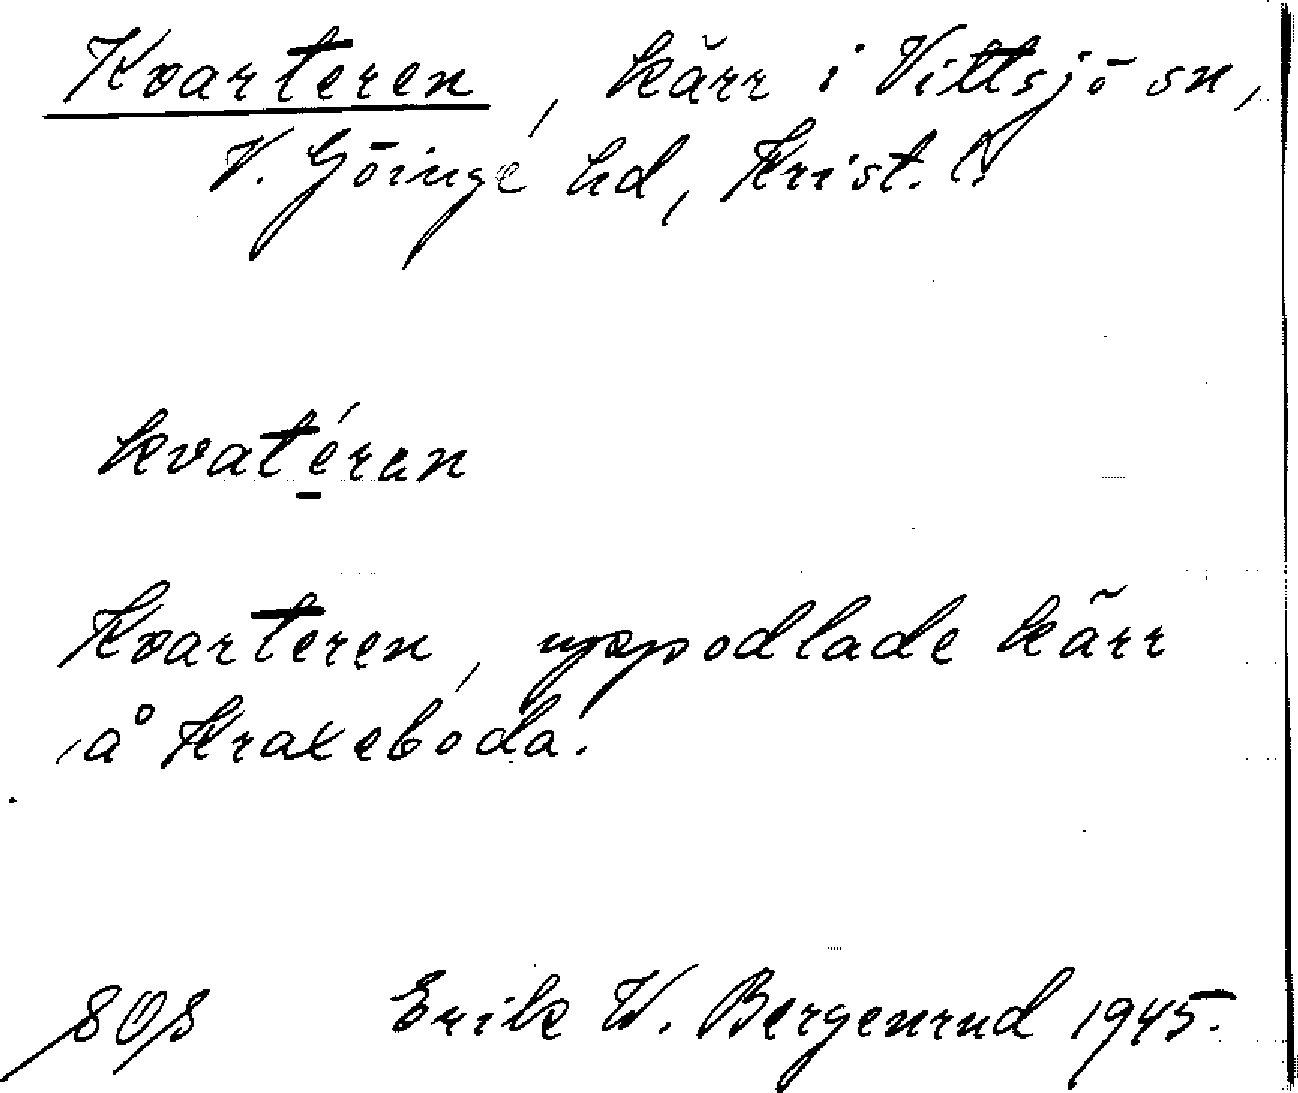 Kvarteren, kärr i Vittsjö sn,
V. Göinge hd, Krist. l.
kvatéran
Kvarteren, uppodlade kärr
å Kraxeboda.
808 Erik W. Bergenrud 1945.